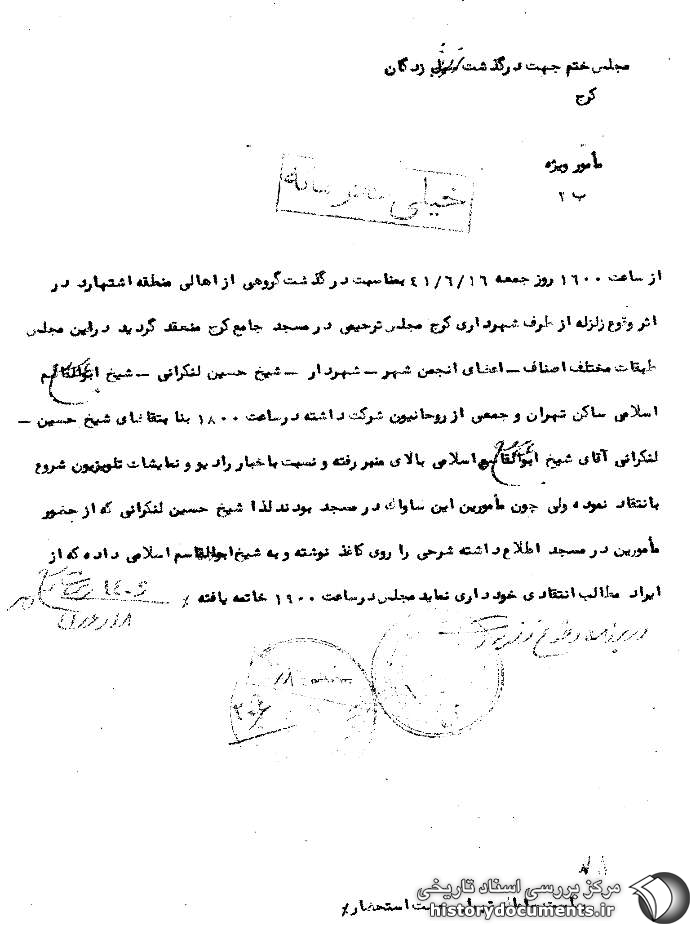 مجلس ختم جهت درگذشت زلزله زدگان
کرج
مأمور ویژه
ب ۲
خیلی محرمانه
از ساعت ۱۶۰۰ روز جمعه ۴۱/۶/۱۶ بمناسبت درگذشت گروهی از اهالی منطقه اشتهارد در
اثر وقوع زلزله از طرف شهرداری کرج مجلس ترحیمی در مسجد جامع کرج منعقد گردید در این مجلس
طبقات مختلف اصناف – اعضای انجمن شهر – شهردار – شیخ حسین لنکرانی – شیخ ابوالقاسم
اسلامی ساکن تهران و جمعی از روحانیون شرکت داشته در ساعت ۱۸۰۰ بنا بتقاضای شیخ حسین –
لنکرانی آقای شیخ ابوالقاسم اسلامی بالای منبر رفته و نسبت باخبار رادیو و نمایشات تلویزیون شروع
بانتقاد نموده ولی چون مأمورین این ساواک در مسجد بودند لذا شیخ حسین لنکرانی که از حضور
مأمورین در مسجد اطلاع داشته شرحی را روی کاغذ نوشته و به شیخ ابوالقاسم اسلامی داده که از
ایراد مطالب انتقادی خودداری نماید مجلس در ساعت ۱۹۰۰ خاتمه یافته ٪
۱۸
۲۰۶
ریاست ساواک تهران جهت استحضار٪
مرکز بررسی اسناد تاریخی
historydocuments.ir